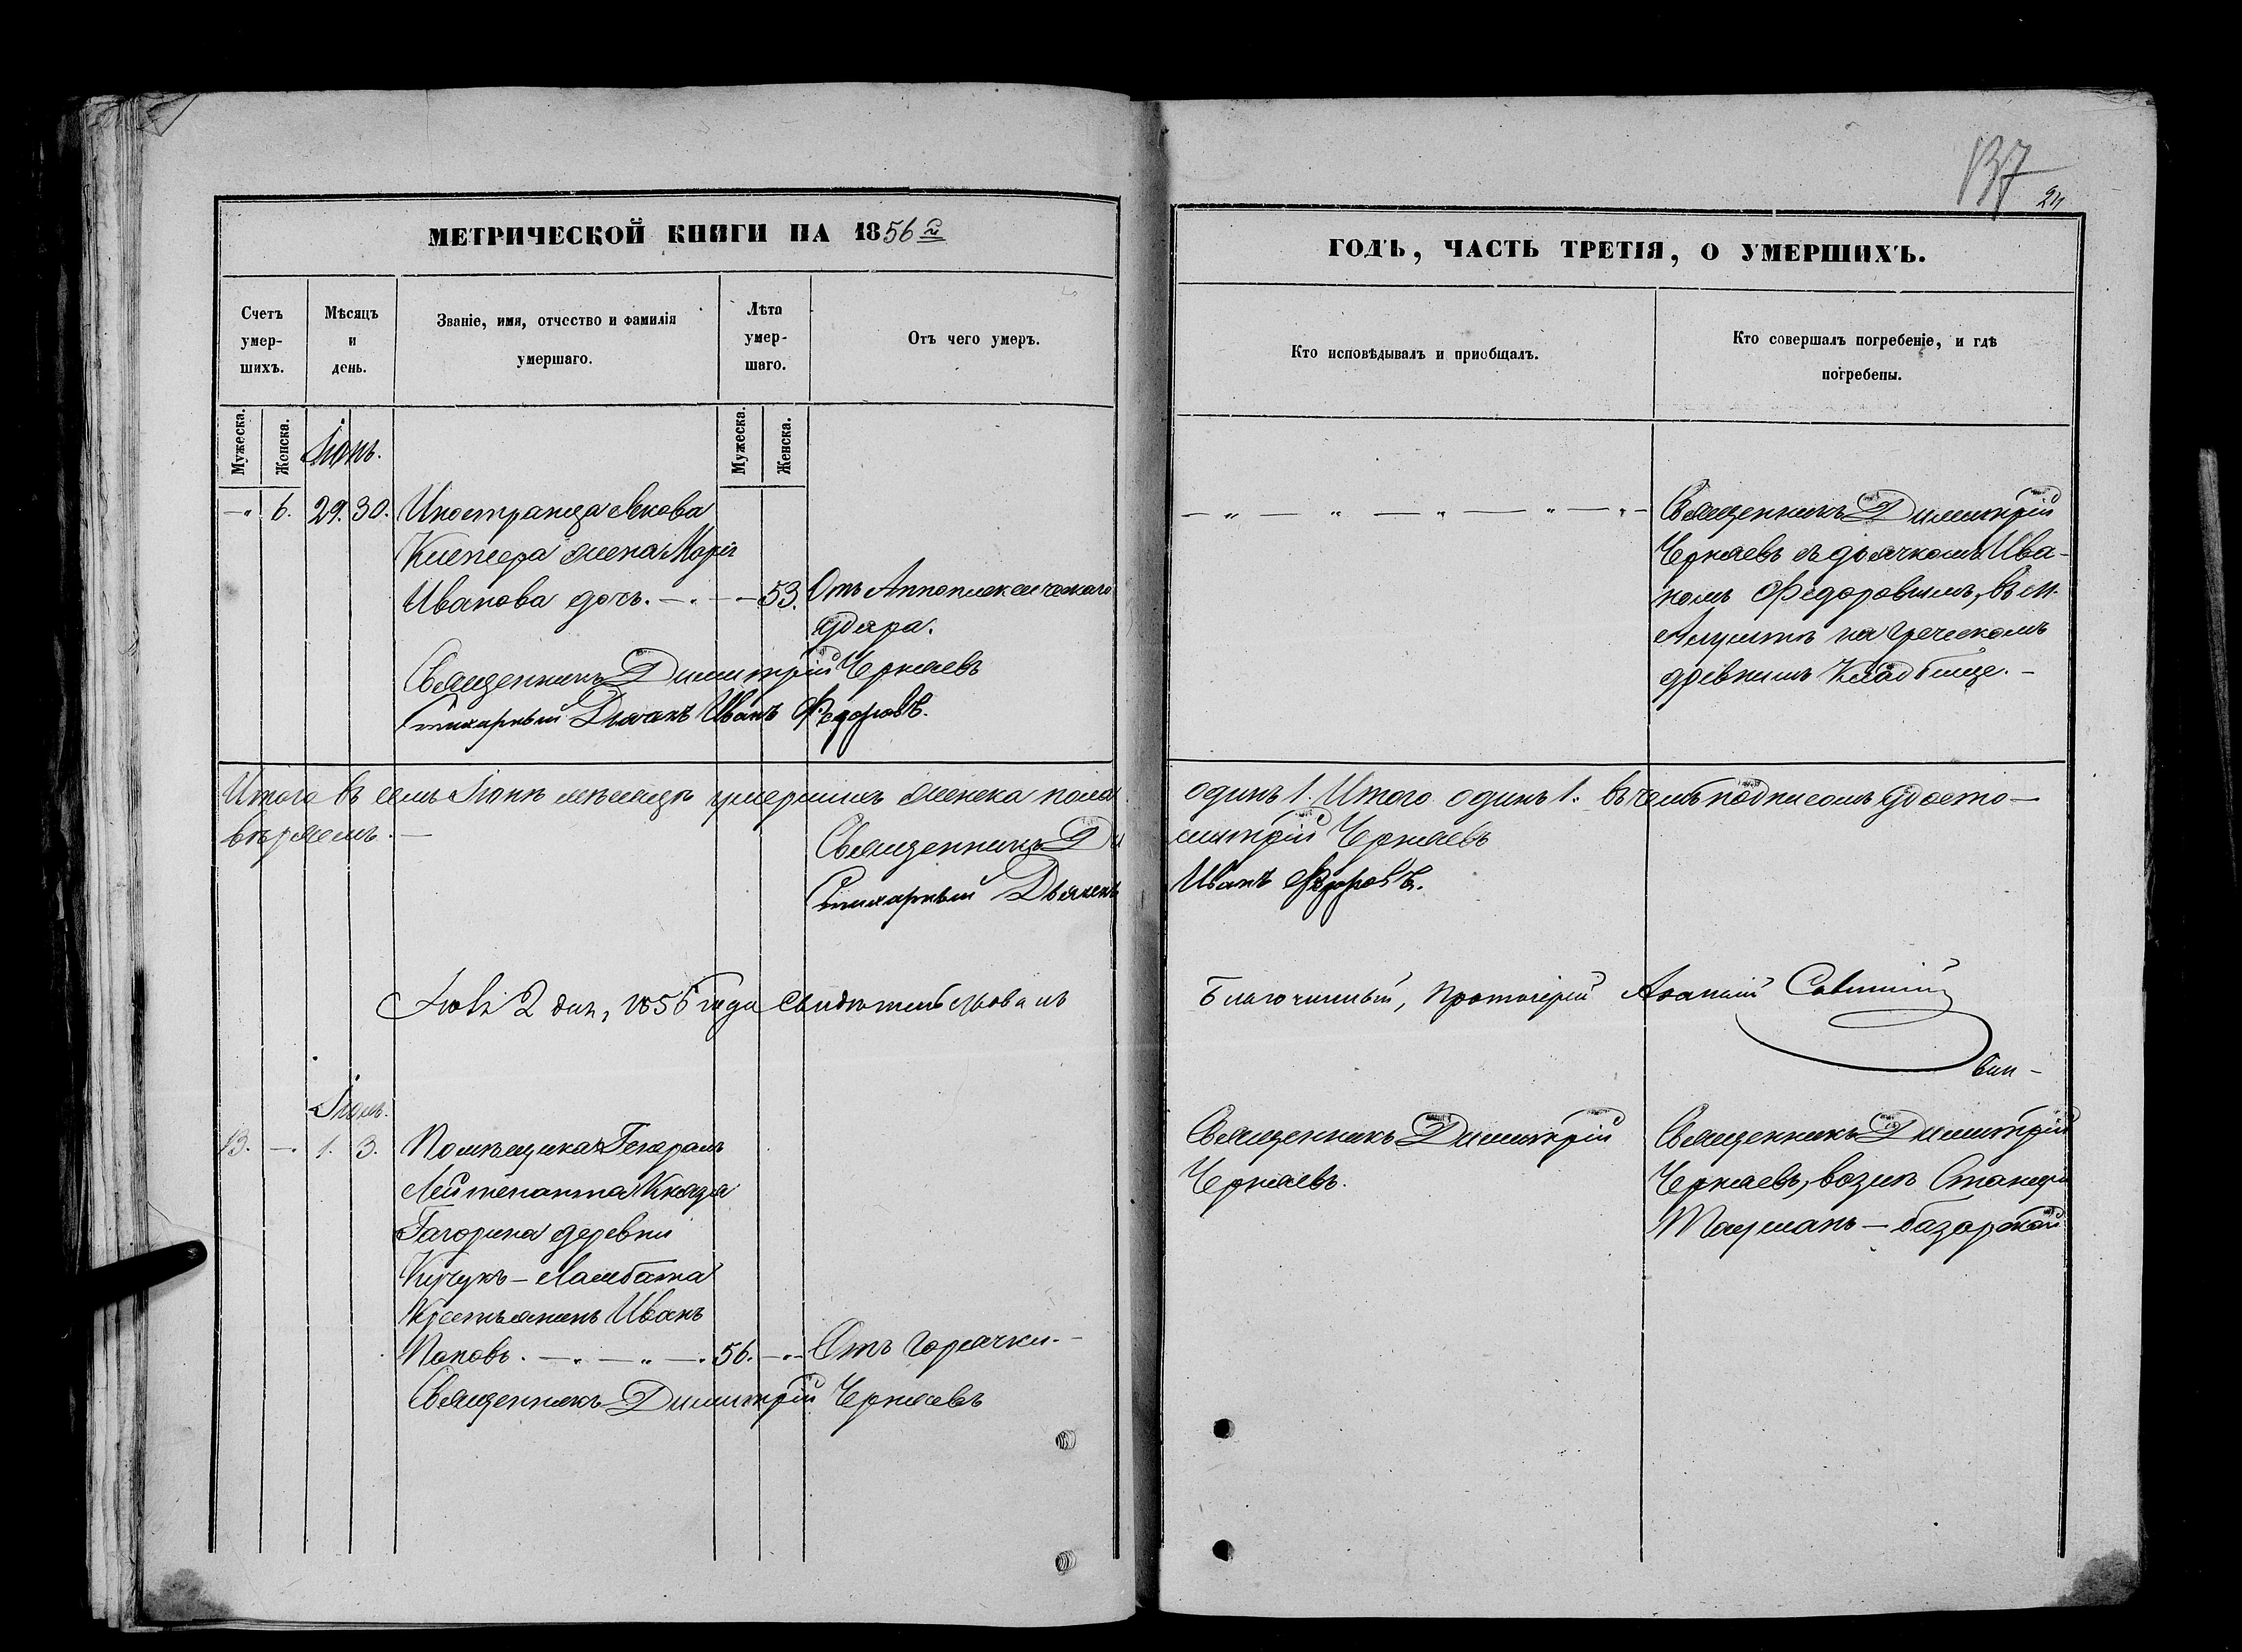 137
24
МЕТРИЧЕСКОЙ КНИГИ НА 1856й
Счетъ
умер-
шихъ.
Мѣсяцъ
и
день.
Званіе, имя, отчество и фамилія
умершаго.
Лѣта
умер-
шаго.
Отъ чего умеръ.
Мужеска.
Женска.
Іюнь.
Мужеска.
Женска.
—„ 6. 29. 30. Иностранца
жена Марія
Иванова дочь. —„— 53. Отъ Аппоплексическаго
удара.
Священникъ Димитрій Черняевъ
Стихарный Дьячекъ Иванъ Федоровъ.
Итого въ семъ Іюнѣ мѣсяцѣ умершихъ женска пола
вѣряемъ. —
Священникъ Ди
Стихарный Дьячекъ
2 дня, 1856 года свидѣтельствовалъ
Іюль.
13. —. 1. 3. Помѣщика Генералъ
Лейтенанта Князя
Гагарина деревни
Кучукъ-Ламбата
Крестьянинъ Иванъ
Поповъ. —„—„— 56. —„— Отъ горячки. —
Священникъ Димитрій Черняевъ
ГОДЪ, ЧАСТЬ ТРЕТІЯ, О УМЕРШИХЪ.
Кто исповѣдывалъ и приобщалъ.
Кто совершалъ погребеніе, и гдѣ
погребены.
—„—„—„—„—„—
Священникъ Димитрій
Черняевъ съ дьячкомъ Ива-
номъ Федоровымъ, въ м.
Алуштѣ на греческомъ
древнимъ Кладбище. —
одинъ 1. Итого одинъ 1. въ чемъ подписомъ удосто-
митрій Черняевъ
Иванъ Федоровъ.
Благочинный, Протоіерей
Священникъ Димитрій
Черняевъ.
Священникъ Димитрій
Черняевъ, возлѣ Станціи